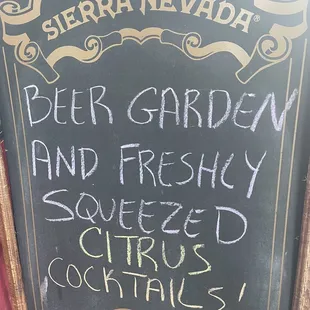 SIERRA NEVADA®
BEER GARDEN
AND FRESHLY
SQUEEZED
CITRUS
COCKTAILS!